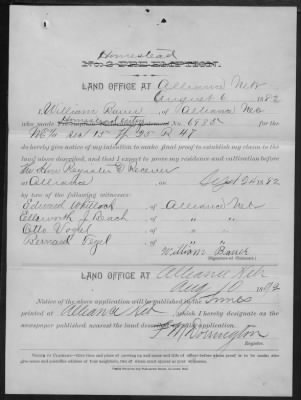 Homestead
No. 3-PRE-EMPTION.
LAND OFFICE AT Alliance Neb
August 6 1892
I, William Bauer, of Alliance Neb
who made Homestead entry No. 6985 for the
15 25 R 48
do hereby give notice of my intention to make final proof to establish my claim to the
land above described, and that I expect to prove my residence and cultivation before
the Hon Register & Receiver
at Alliance on Sept 24 1892
by two of the following witnesses:
Edward Whitlock of Alliance Neb
Ellsworth J Beach of " "
Otto Vogel of " "
Bernard of " "
William Bauer
(Signature of Claimant.)
LAND OFFICE AT Alliance Neb
Aug 10 1892
Notice of the above application will be published in the Times
printed at Alliance Neb, which I hereby designate as the
newspaper published nearest the land described in said application.
Dorrington
Register.